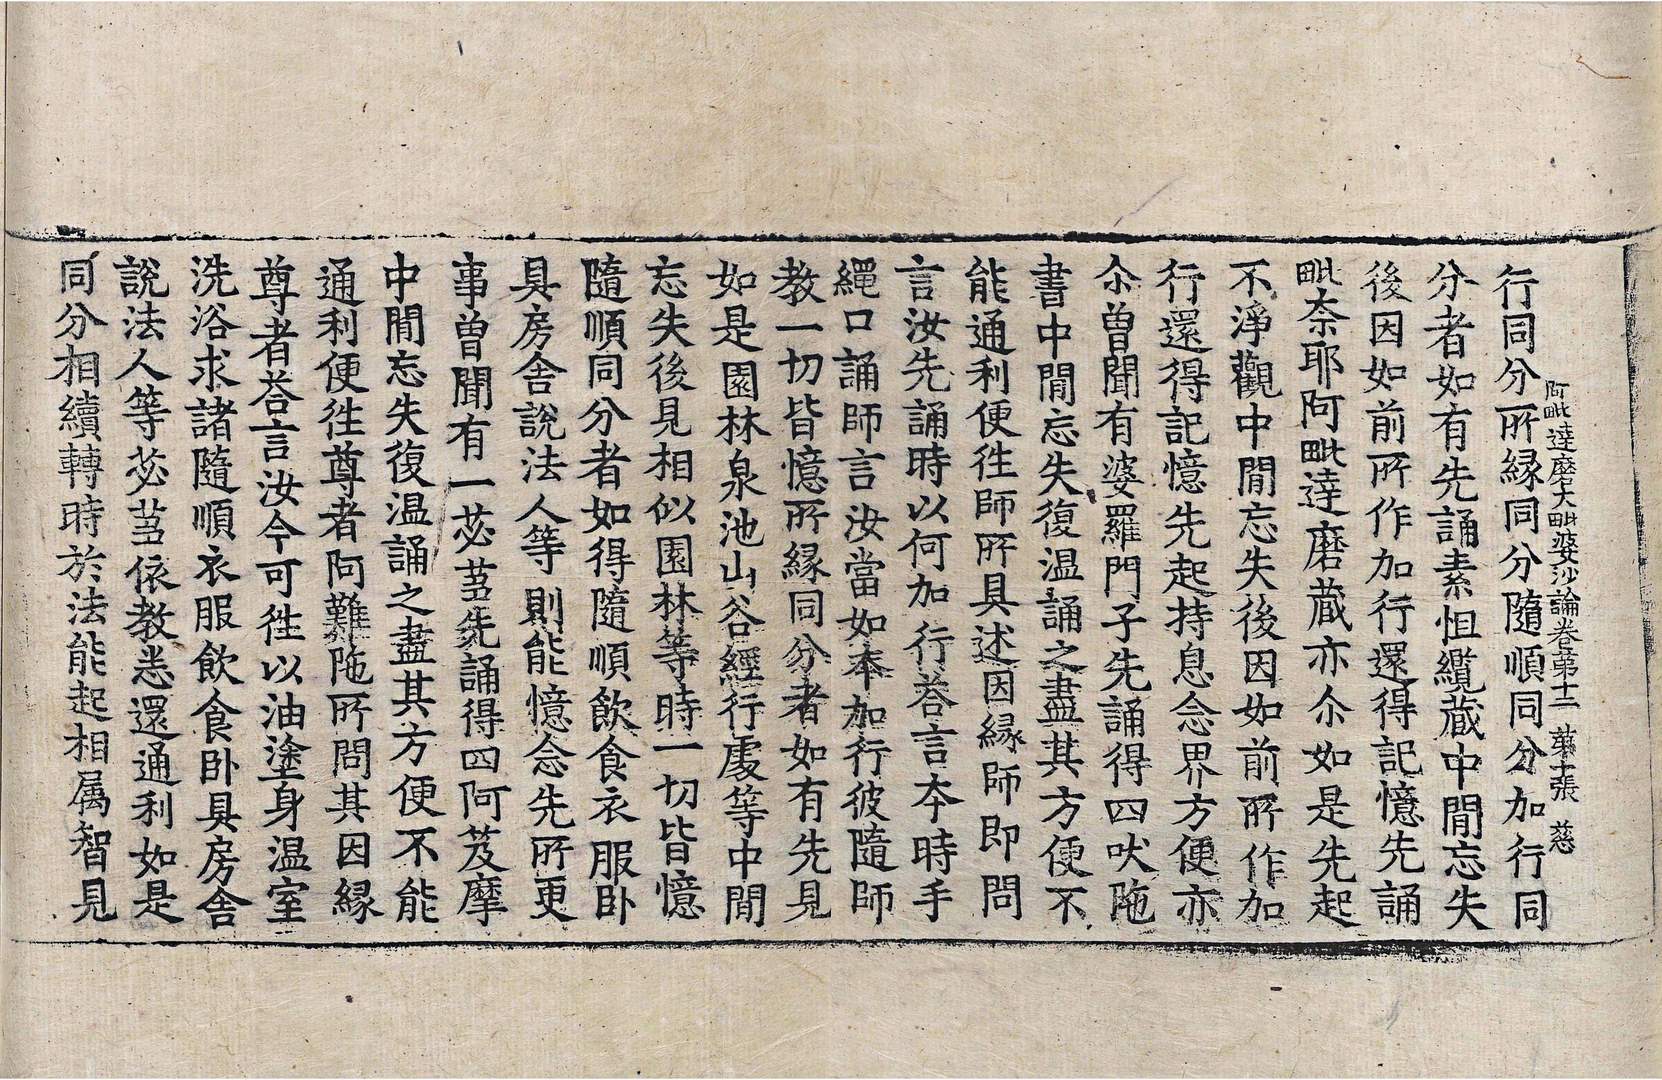 阿毗達磨大毗婆沙論卷第十二　第十張　慈
行同分所緣同分隨順同分加行同
分者如有先誦素怛纜藏中間忘失
後因如前所作加行還得記憶先誦
毗奈耶阿毗達磨藏亦尒如是先起
不淨觀中間忘失後因如前所作加
行還得記憶先起持息念界方便亦
尒曾聞有婆羅門子先誦得四吠陁
書中間忘失復温誦之盡其方便不
能通利便徃師所具述因緣師即問
言汝先誦時以何加行荅言夲時手
繩口誦師言汝當如夲加行彼隨師
教一切皆憶所緣同分者如有先見
如是園林泉池山谷經行處等中間
忘失後見相似園林等時一切皆憶
隨順同分者如得隨順飲食衣服卧
具房舍說法人等則能憶念先所更
事曾聞有一苾芻先誦得四阿笈摩
中間忘失復温誦之盡其方便不能
通利便徃尊者阿難陁所問其因緣
尊者荅言汝今可徃以油塗身温室
洗浴求諸隨順衣服飲食卧具房舍
說法人等苾芻依教悉還通利如是
同分相續轉時於法能起相属智見